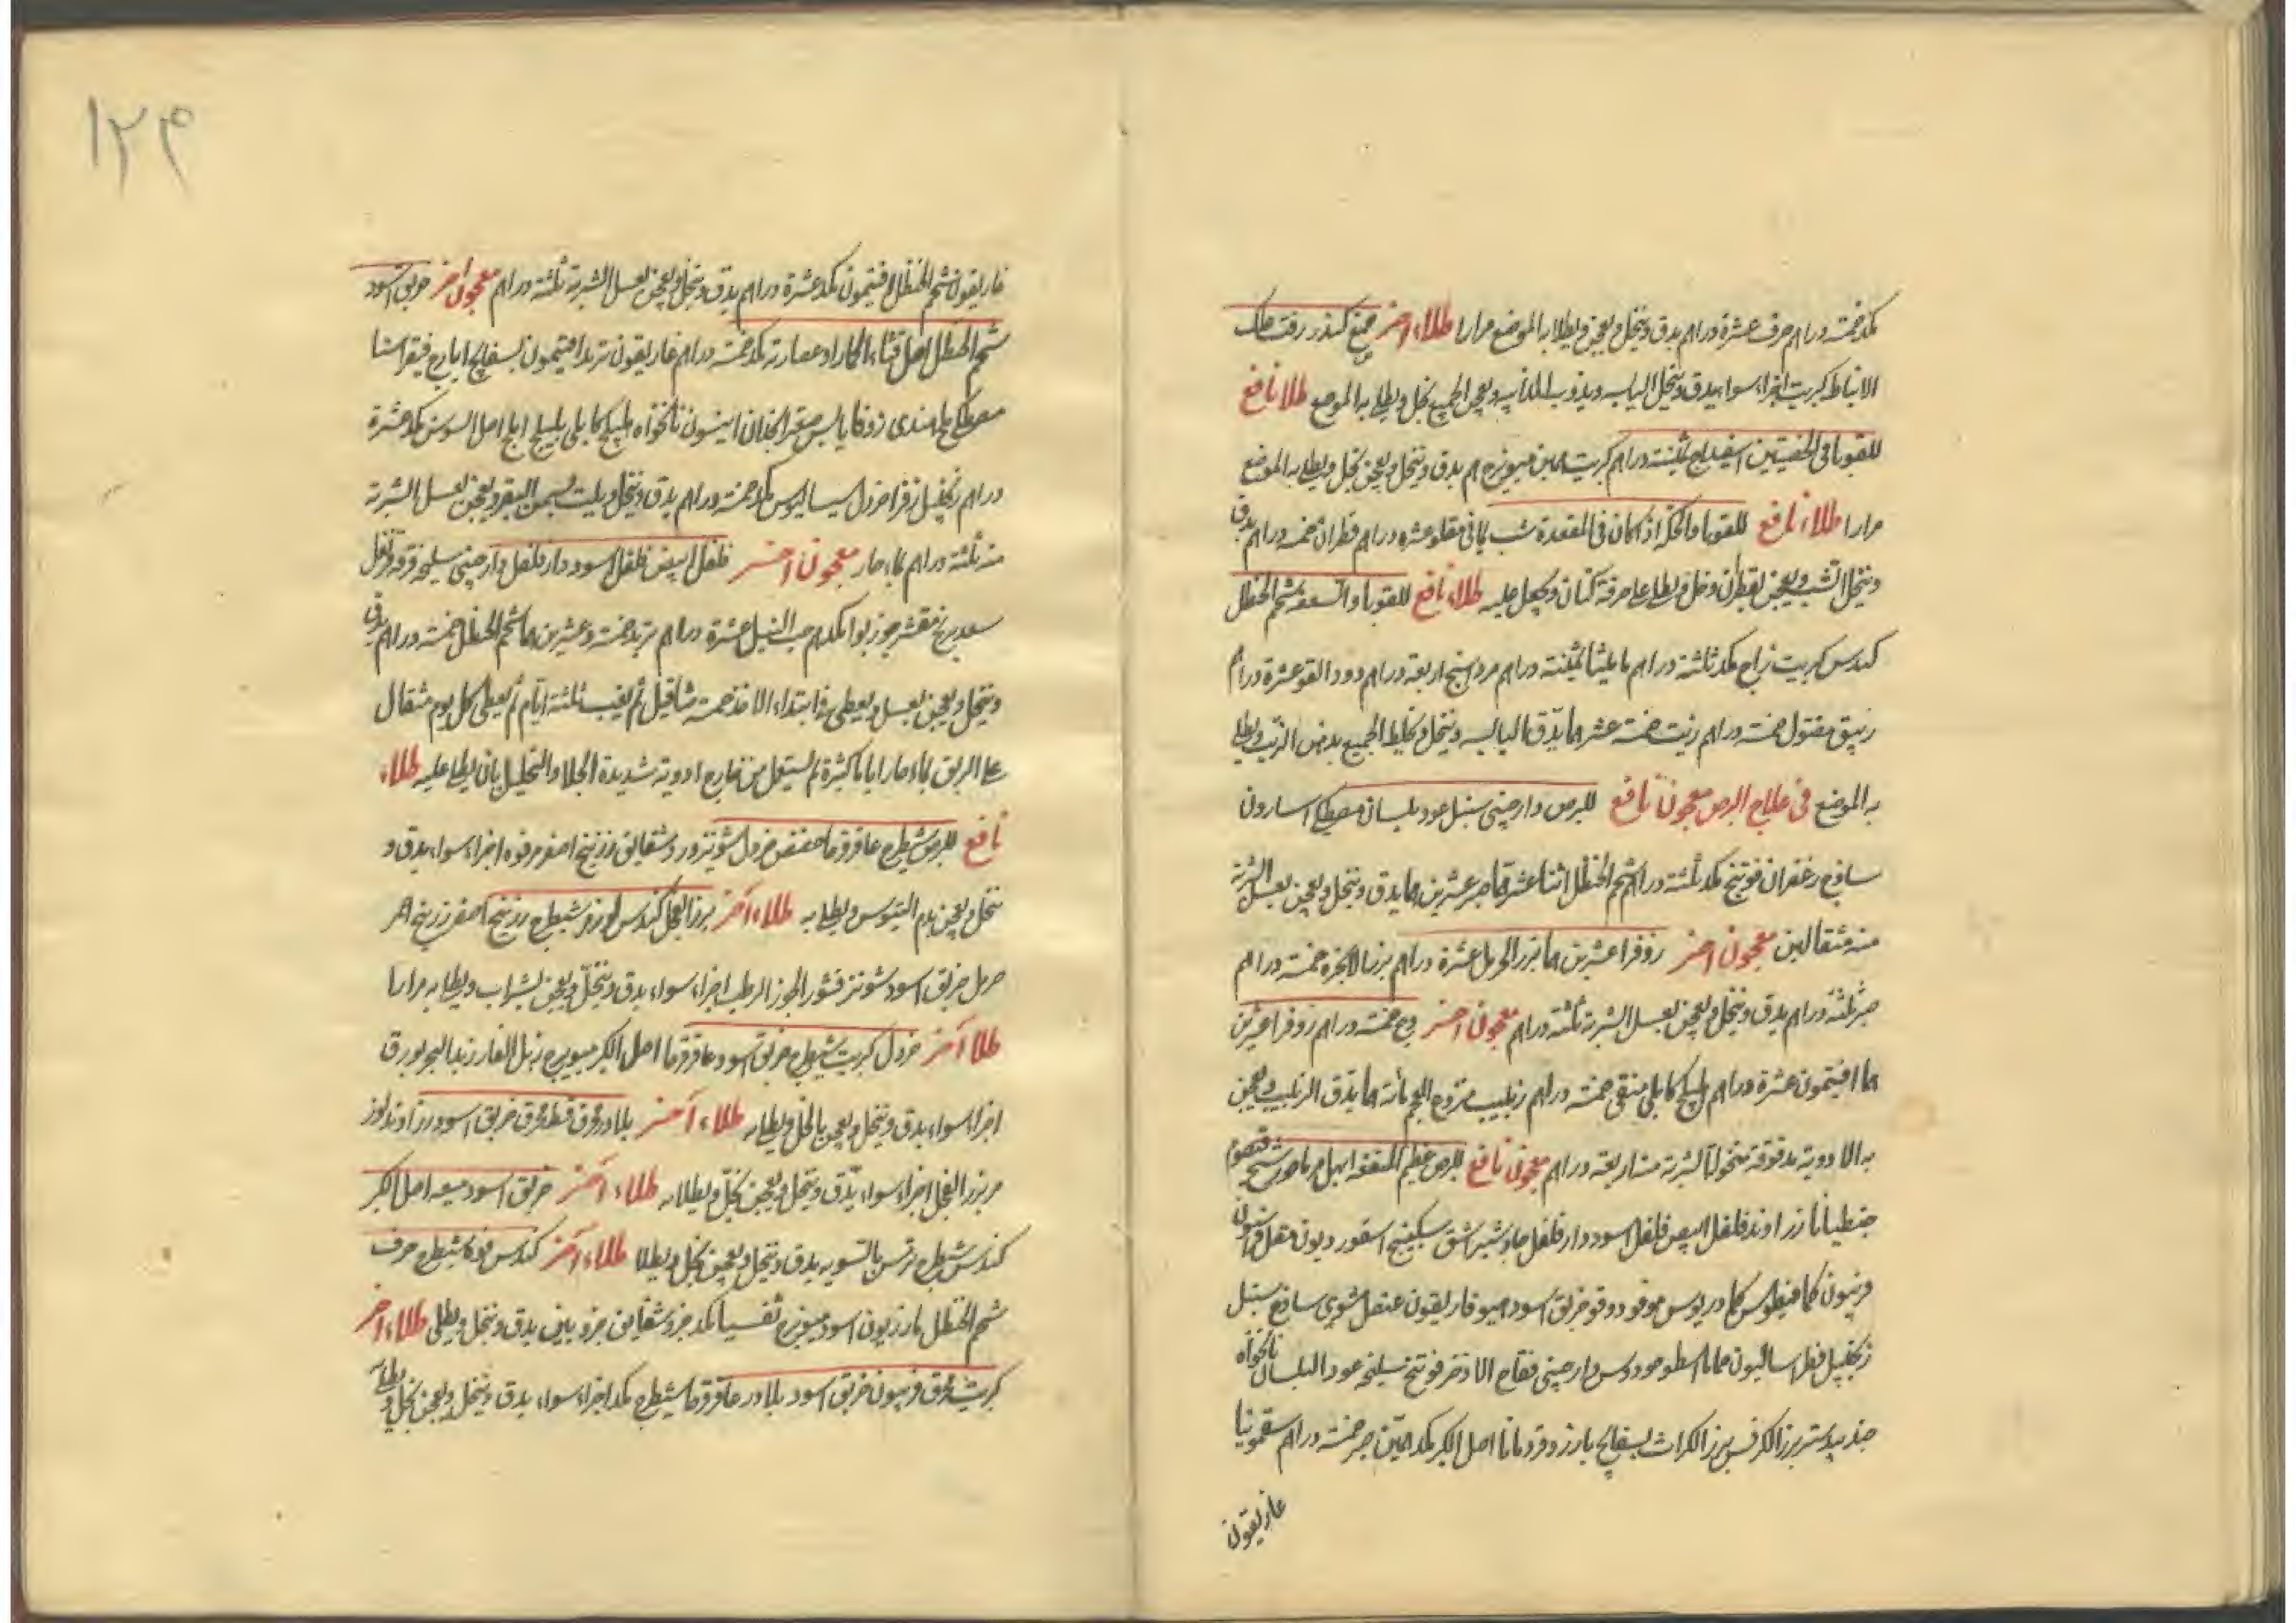 مكد خمسة دراهم حرف عشرة دراهم يدق وينخل ويعجن ويطلا به الموضع مرارا طلاء اخر صمغ كندر زفت علك
الانباط كبريت اجزاء سواء يدق وينخل اليابسه ويذوب الذائبه ويعجن الجميع بخل ويطلا به الموضع طلا نافع
للقوبا في الخصيتين اسفيداج ثمنية دراهم كبريت ميويزج يدق وينخل ويعجن بخل ويطلا به الموضع
مرارا طلاء نافع للقوبا والحكة اذا كان في المقعدة شب يماني مقلو عشره دراهم قطران خمسة دراهم يدق
وينخل الشب ويعجن بقطران وخل ويطلى على خرقة كتان ويجعل عليه طلاء نافع للقوبا والسعفه شحم الحنظل
كندس كبريت زاج مكد ثلثة دراهم ماميثا ثمنية دراهم مرداسنج اربعة دراهم عشرة دراهم
زيبق مقتول خمسة دراهم زيت خمسة عشر يدق اليابسه وينخل ويخلط الجميع بدهن الزيت ويطلى
به الموضع في علاج البرص معجون نافع للبرص دارصيني سنبل عود بلسان مصطكي اسارون
سادج زعفران فوتنج مكد ثلثة دراهم شحم الحنظل اثنا عشر صبر عشرين يدق وينخل ويعجن بعسل الشربة
منه مثقالين معجون اخر زوفرا عشرين بزر الحرمل عشرة دراهم بزر الانجره خمسة دراهم
صبر ثلثه دراهم يدق وينخل ويعجن بعسل الشربة ثلثة دراهم معجون اخر وج خمسة دراهم زوفرا عشرين
افتيمون عشرة دراهم هليلج كابلي منقى خمسة دراهم زبيب منزوع العجم مائة يدق الزبيب ويعجن
به الادوية مدقوقة منخولة الشربة منه اربعة دراهم معجون نافع للبرص عظيم المنفعه ابهل شيح قيصوم
جنطيانا زراوند فلفل ابيض فلفل اسود دار فلفل جاوشير اشق سكبينج اسقورديون مقل
فربيون كمافيطوس كمادريوس دوقو خربق اسود غاريقون عنصل مشوي سادج سنبل
زنجبيل حماما اسطوخودوس دارصيني فقاح الاذخر فوتنج سليخه عود البلسان نانخواه
جندبيدستر بزر الكرفس بزر الكراث بسفايج بارزد قردمانا اصل الكبر مكد صبر خمسة دراهم سقمونيا
غاريقون
١٢٣
غاريقون شحم الحنظل افتيمون مكد عشرة دراهم يدق وينخل ويعجن بعسل الشربة ثلثة دراهم معجون اخر خربق اسود
شحم الحنظل اصل قثاء الحمار او عصارته مكد خمسة دراهم غاريقون تربد افتيمون بسفايج ايارج فيقرا
مصطكي ملح هندي زوفا يابس صعتر انجدان انيسون نانخواه هليلج كابلي بليلج املج اصل السوس مكد عشرة
دراهم زنجبيل زوفرا خردل سيساليوس مكد خمسة دراهم يدق وينخل ويلت بسمن البقر ويعجن بعسل الشربة
منه ثلثة دراهم بماء حار معجون اخر فلفل ابيض فلفل اسود دار فلفل دارصيني سليخه قرفه قرنفل
سعد برنج مقشر جوز بوا حب النيل عشرة دراهم تربد خمسة وعشرين شحم الحنظل خمسة دراهم يدق
وينخل ويعجن بعسل ويعطى في ابتداء الاخذ خمسة مثاقيل ثم يغب ثلثة ايام ثم يعطى كل يوم مثقال
على الريق بماء حار اياما كثيرة ثم يستعمل من خارج ادوية شديدة الجلا والتحليل بان يطلى عليه طلاء
نافع للبرص شيطرج عاقرقرحا خردل شونيز شقايق زرنيخ اصفر فوه اجزاء سواء يدق و
ينخل ويعجن بدم التيوس ويطلا به طلاء اخر بزر الفجل كندس شيطرج زرنيخ اصفر زرنيخ احمر
حرمل خربق اسود شونيز قشور الجوز الرطب اجزاء سواء يدق وينخل ويعجن بشراب ويطلا به مرارا
طلا اخر خردل كبريت شيطرج خربق اسود عاقرقرحا اصل الكبر ميويزج زبل الفار زبد البحر بورق
اجزاء سواء يدق وينخل ويعجن بالخل ويطلا به طلاء اخر بلادر محرق قسط محرق خربق اسود زراوند
مر بزر الفجل اجزاء سواء يدق وينخل ويعجن بخل ويطلا به طلاء اخر خربق اسود ميعه اصل الكبر
كندس شيطرج ترمس بالسويه يدق وينخل ويعجن بخل ويطلا طلاء اخر كندس شيطرج حرف
شحم الحنظل مازريون اسود ميويزج تفسيا مكد جزو شقايق جزوين يدق وينخل ويطلى طلاء اخر
كبريت محرق فربيون خربق اسود بلادر عاقرقرحا شيطرج مكد اجزاء سواء يدق وينخل ويعجن بخل ويطلا به